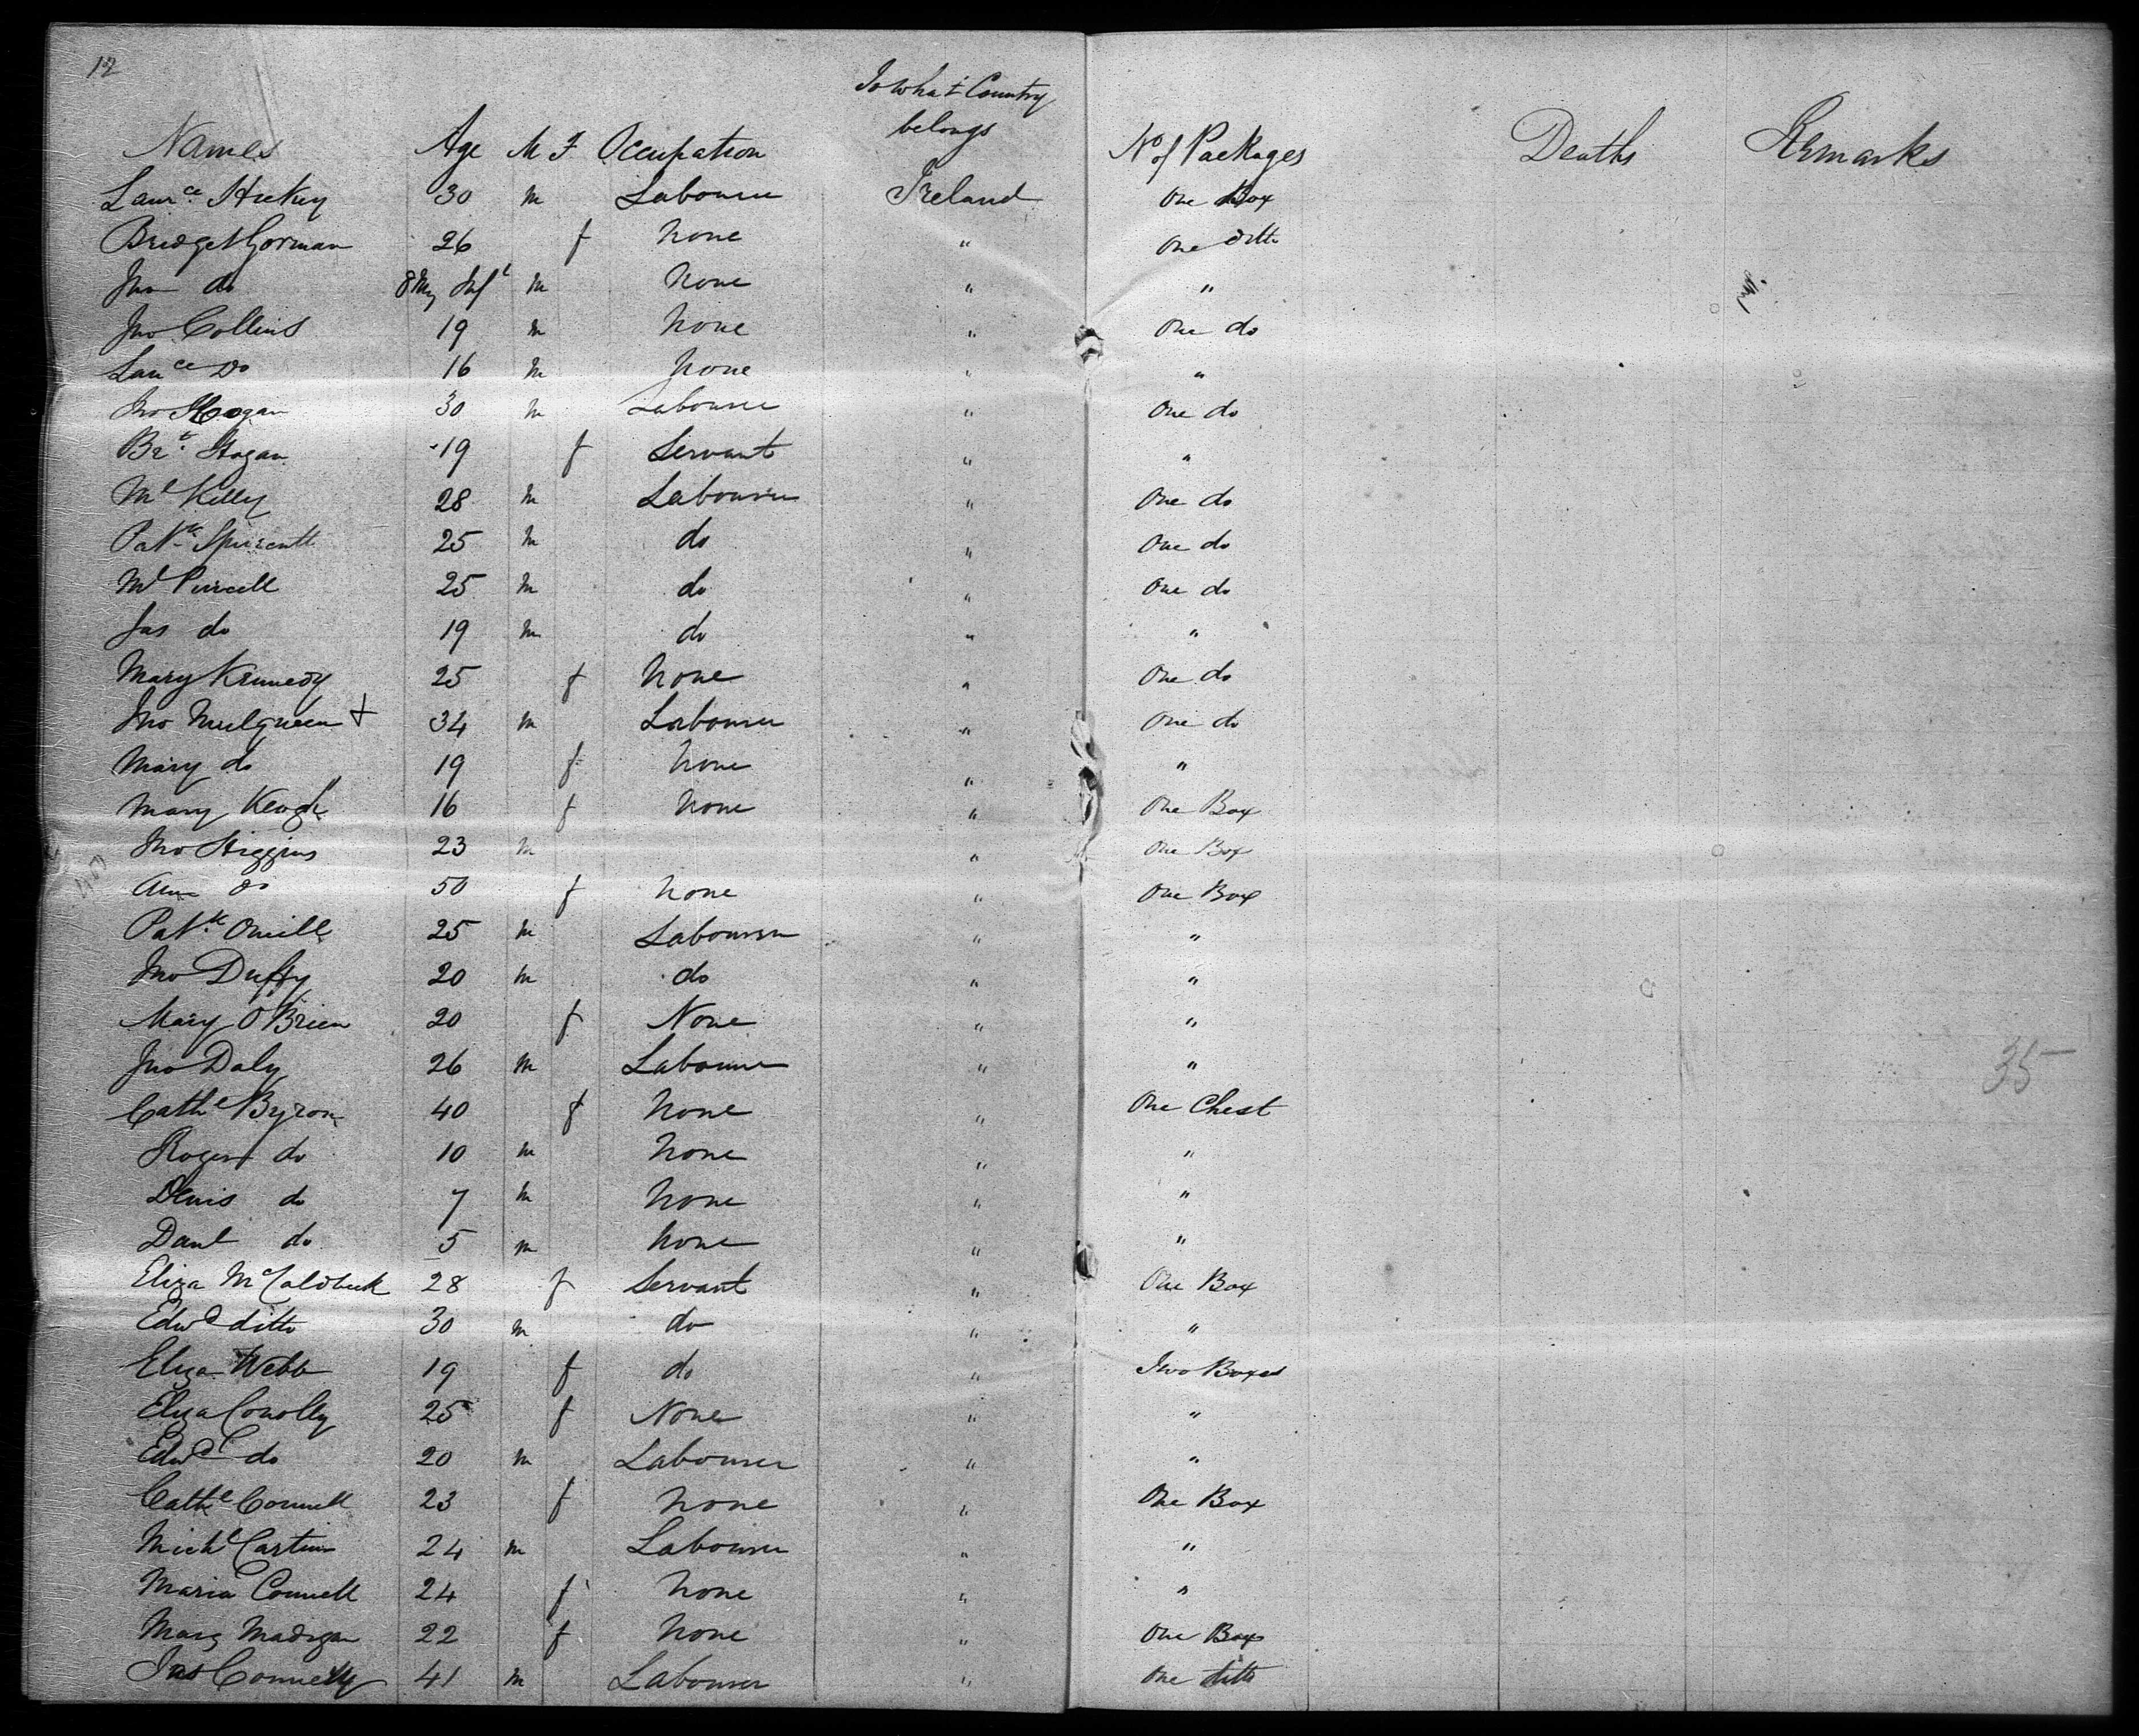 12
To what Country
belongs
Names Age M F Occupation No of Packages Deaths Remarks
Laur ce Hickey 30 m Labourer Ireland One Box
Bridget Gorman 26 f None " One ditto
Jno do 8 Inf t m None " "
Jno Collins 19 m None " One do
Lau ce Do 16 m None " "
Jno Hogan 30 m Labourer " One do
Br t Hogan 19 f Servant " "
Ml Kelly 28 m Labourer " One do
Pat k 25 m do " One do
Ml Purcell 25 m do " One do
Jas do 19 m do " "
Mary Kennedy 25 f None " One do
Jno Mulqueen + 34 m Labourer " One do
Mary do 19 f None " "
Mary Keogh 16 f None " One Box
Jno Higgins 23 m " One Box
Ann do 50 f None " One Box
Pat k Oneill 25 m Labourer " "
Jno Duffy 20 m do " "
Mary O'Brien 20 f None " "
Jno Daly 26 m Labourer " "
35
Cath e Byron 40 f None " One Chest
Roger do 10 m None " "
Denis do 7 m None " "
Danl do 5 m None " "
Eliza McCaldbeck 28 f Servant " One Box
Edwd ditto 30 m do " "
Eliza Webb 19 f do " Two Boxes
Eliza Conolly 25 f None " "
Edwd do 20 m Labourer " "
Cathe Connell 23 f None " One Box
Michl 24 m Labourer " "
Maria Connell 24 f None " "
Marg Madigan 22 f None " One Box
Jas Connelly 41 m Labourer " One ditto